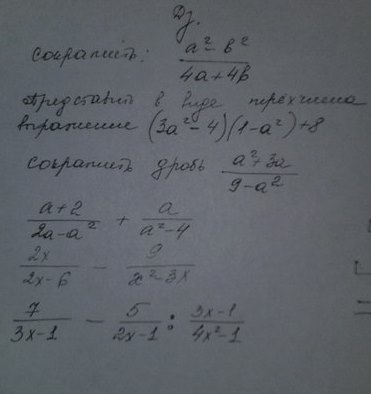 Дз.
сократить: (a² - b²)/(4a+4b)
Представить в виде трёхчлена
выражение (3a²-4)(1-a²)+8
сократить дробь (a²+3a)/(9-a²)
(a+2)/(2a-a²) + a/(a²-4)
2x/(2x-6) - 9/(x²-3x)
7/(3x-1) - 5/(2x-1) : (3x-1)/(4x²-1)